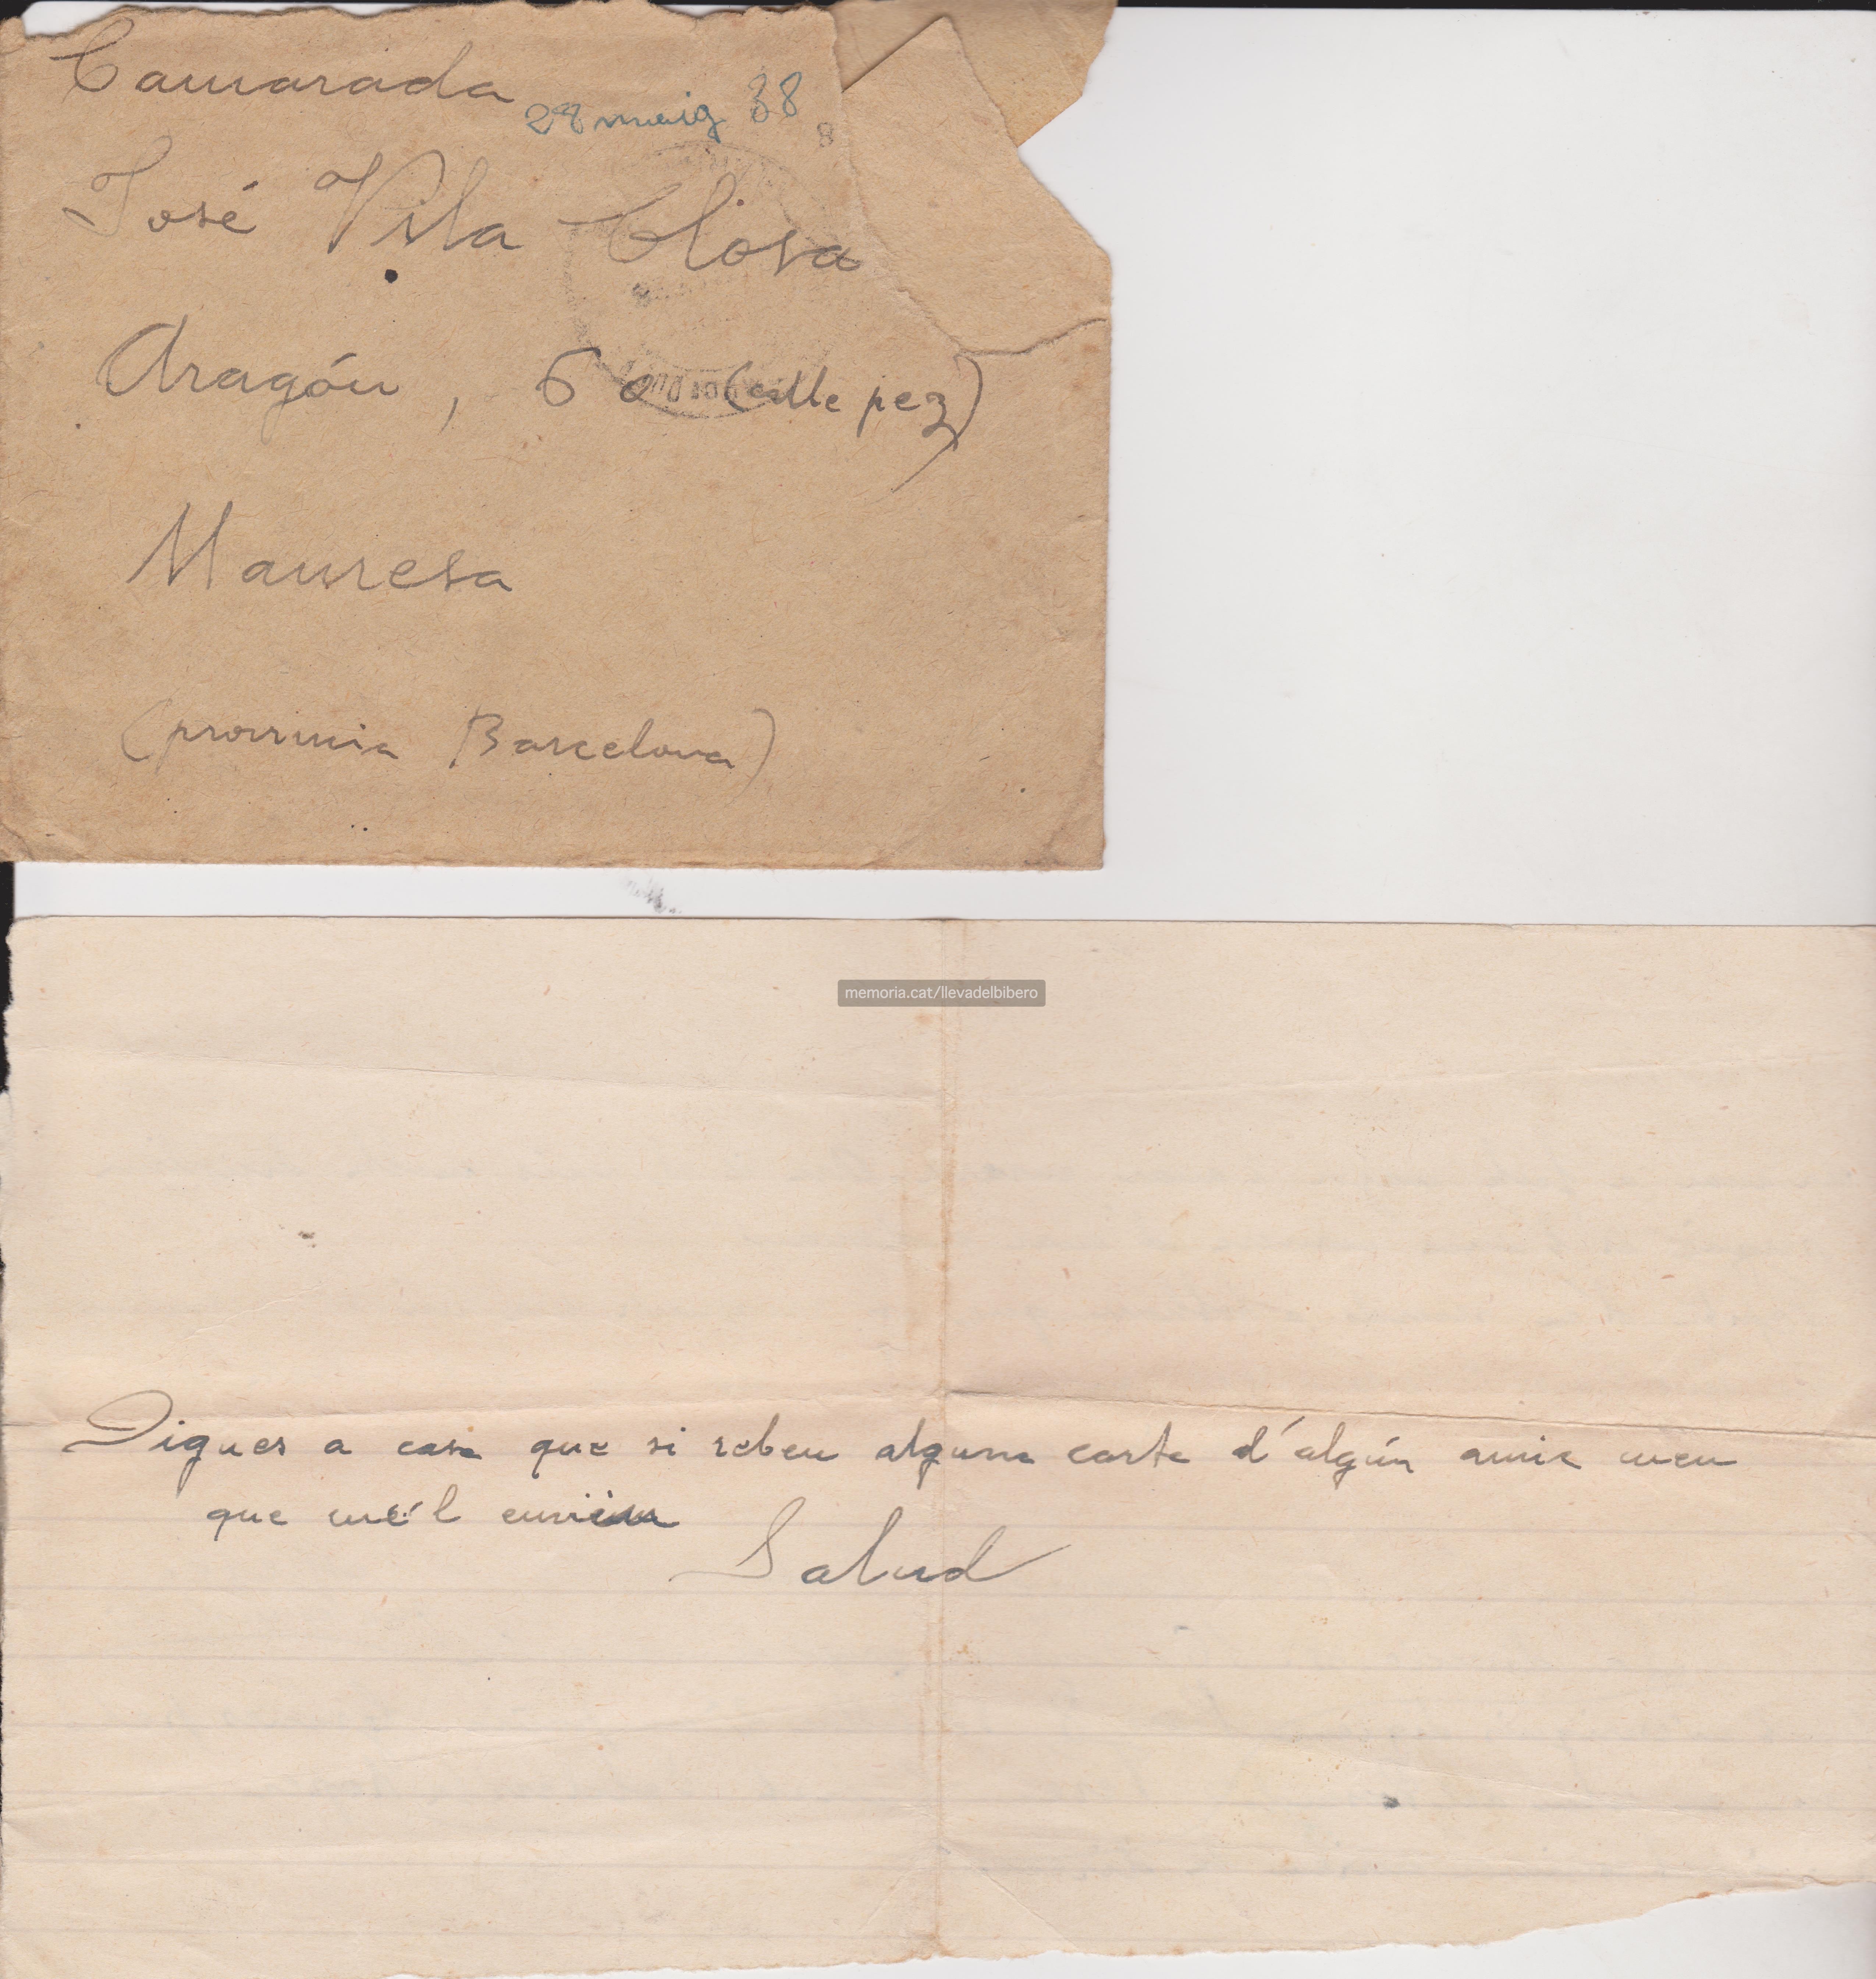 Camarada
28 maig 38
8
José Vila Closa
Aragón, 60 (calle pez)
Manresa
(provincia Barcelona)
memoria.cat/llevadelbibero
Digues a casa que si rebeu alguna carta d'algún amic meu
que me'l enviin
Salud